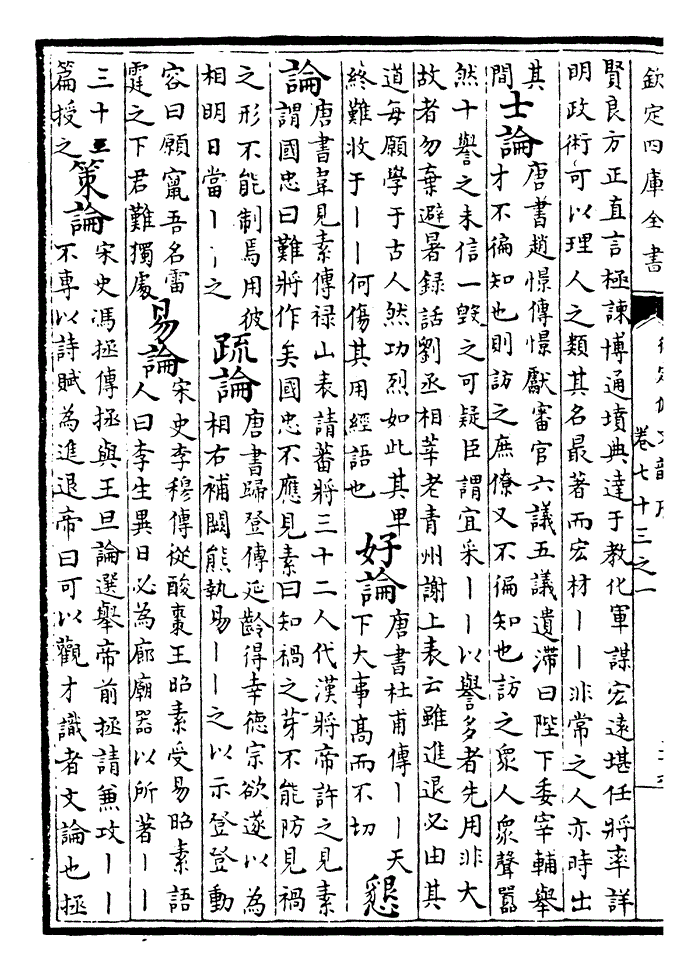 欽定四庫全書
卷七十三之一
賢良方正直言極諫博通墳典達于教化軍謀宏遠堪任將率詳
明政術可以理人之類其名最著而宏材丨丨非常之人亦時出
其
間
士論
唐書趙憬傳憬獻審官六議五議遺滯曰陛下委宰輔舉
才不徧知也則訪之庶僚又不徧知也訪之衆人衆聲囂
然十譽之未信一毁之可疑臣謂宜采丨丨以譽多者先用非大
故者勿棄避暑録話劉丞相莘老青州謝上表云雖進退必由其
道每願學于古人然功烈如此其卑
終難收于丨丨何傷其用經語也
好論
唐書杜甫傳丨丨天
下大事髙而不切
懇
論
唐書韋見素傳禄山表請蕃將三十二人代漢將帝許之見素
謂國忠曰難將作矣國忠不應見素曰知禍之芽不能防見禍
之形不能制焉用彼
相明日當丨丨之
疏論
唐書歸登傳延齡得幸德宗欲遂以為
相右補闕熊執易丨丨之以示登登動
容曰願竄吾名雷
霆之下君難獨處
易論
宋史李穆傳從酸棗王昭素受易昭素語
人曰李生異日必為廊廟器以所著丨丨
三十三
篇授之
策論
宋史馮拯傳拯與王旦論選舉帝前拯請兼攻丨丨
不專以詩賦為進退帝曰可以觀才識者文論也拯